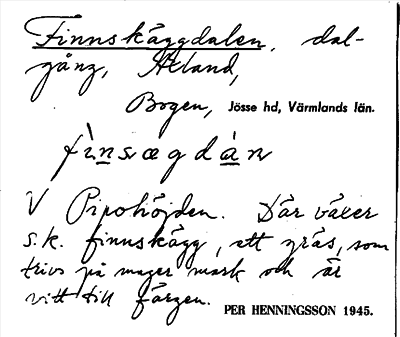 Finnskäggdalen, dal-
gång, Åtland,
Bogen, Jösse hd, Värmlands län.
fìnsvægdàn
V Pipohöjden. Där växer
s.k. finnskägg, ett gräs, som
trivs på mager mark och är
vitt till färgen.
PER HENNINGSSON 1945.